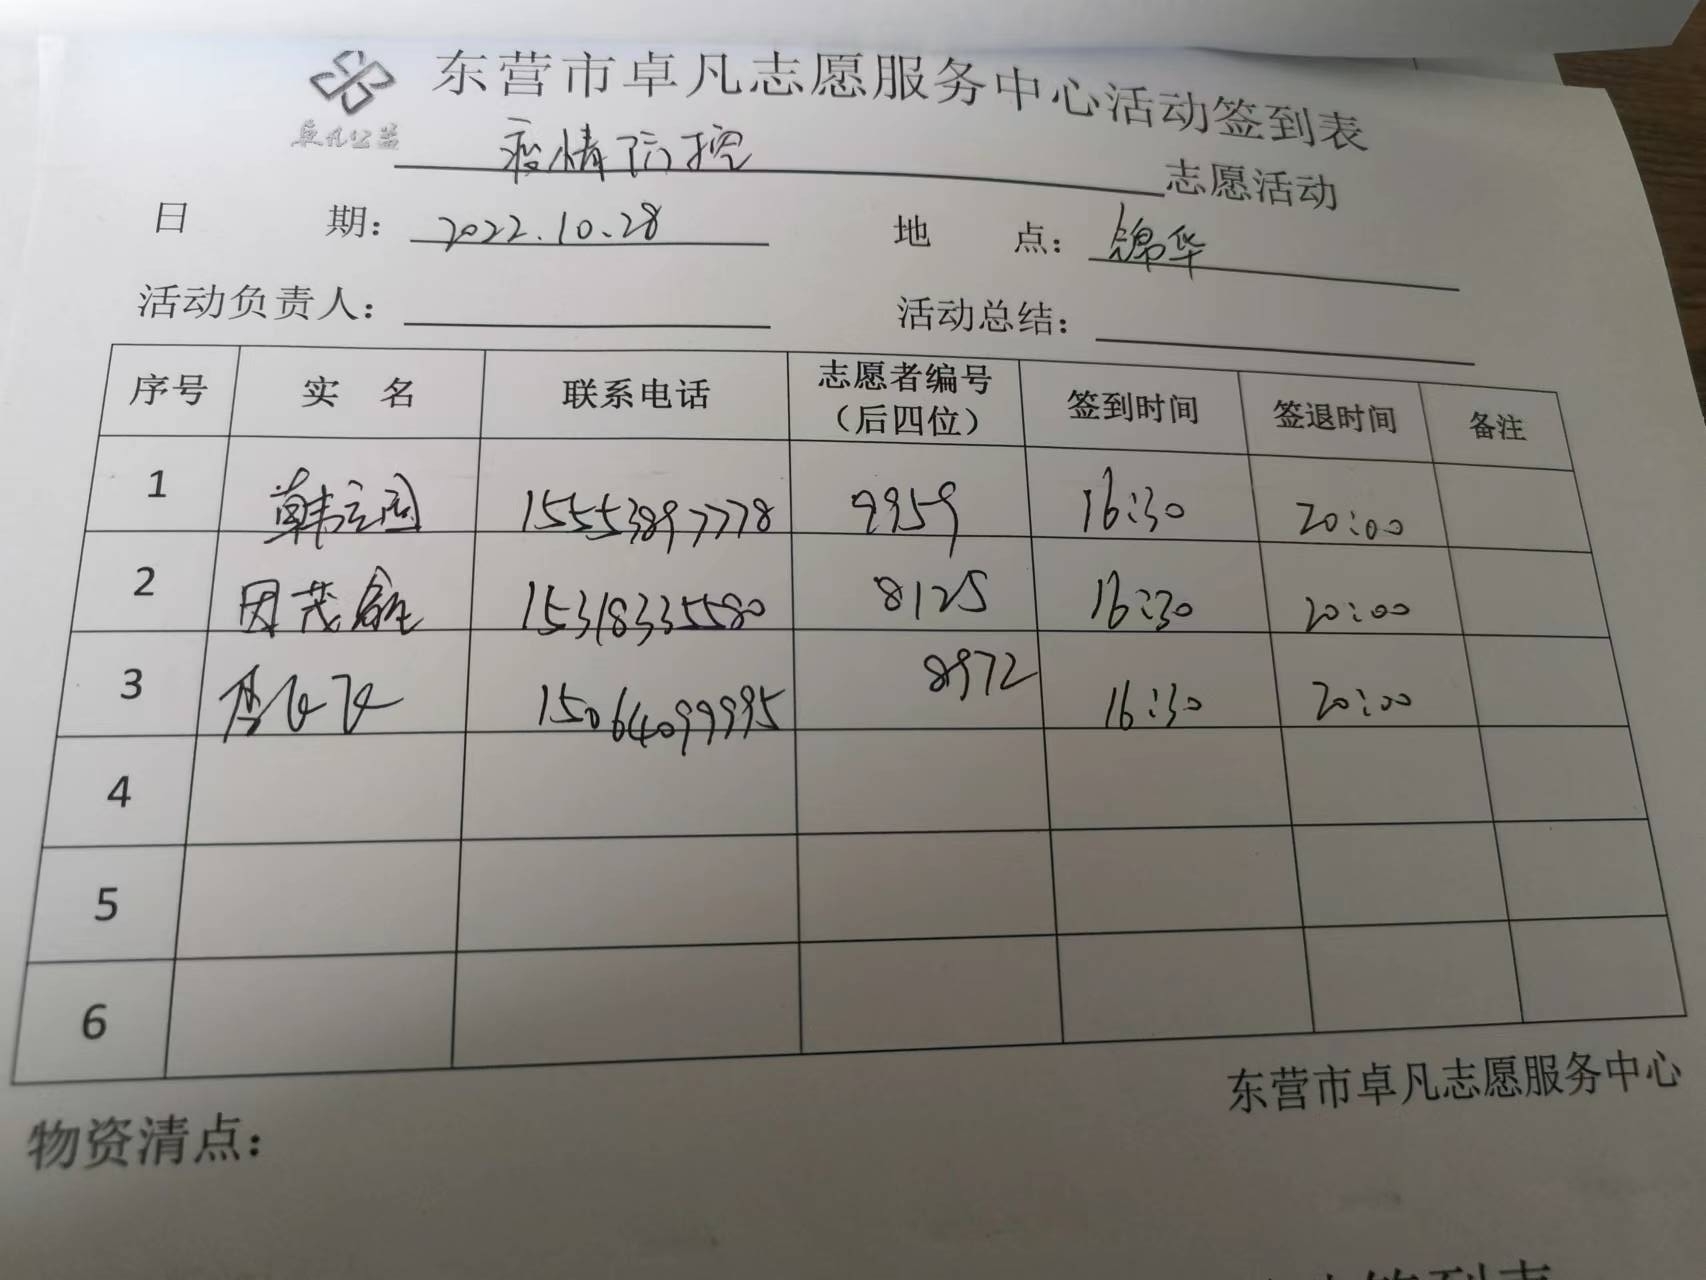 东营市卓凡志愿服务中心活动签到表
卓凡公益
疫情防控 志愿活动
日 期: 2022.10.28 地 点: 锦华
活动负责人: 活动总结:
序号 实 名 联系电话 志愿者编号（后四位） 签到时间 签退时间 备注
1 韩立国 15553897778 9959 16:30 20:00
2 茂 15318335580 8125 16:30 20:00
3 李飞飞 15064099995 8972 16:30 20:00
4
5
6
东营市卓凡志愿服务中心
物资清点: